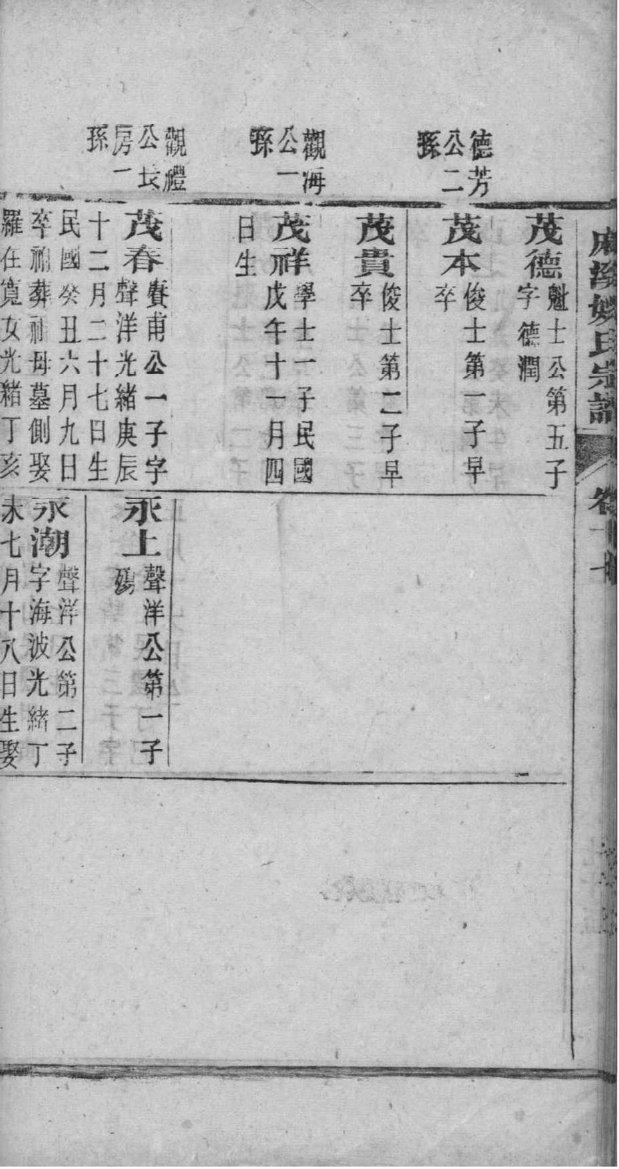 麻溪姚氏宗譜 卷十
德芳
公二
孫
觀海
公一
孫
觀禮
公長
房一
孫
茂德
魁士公第五子
字德潤
茂本
俊士第一子早
卒
茂貴
俊士第二子早
卒
茂祥
學士一子民國
戊午年十一月四
日生
茂春
賡甫公一子字
聲洋光緒庚辰
十二月二十七日生
民國癸丑六月九日
卒祔葬祖母墓側娶
羅在寬女光緒丁亥
永上
聲洋公第一子
殤
永潮
聲洋公第二子
字海波光緒丁
未七月十八日生娶